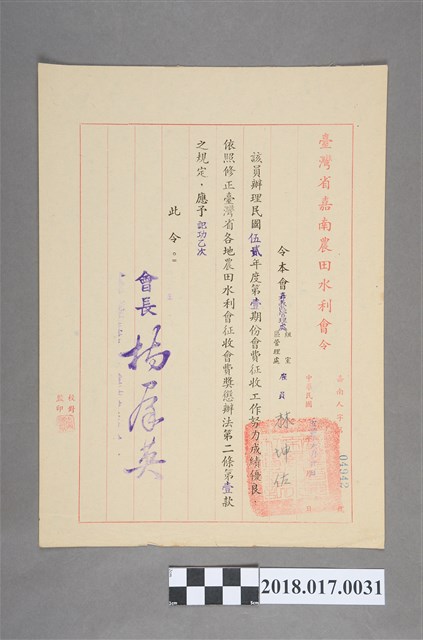 臺灣省嘉南農田水利會令
嘉南人字
04942
中華民國
令本會
區管理處
雇員
林坤佐
該員辦理民國伍貳年度第壹期份會費征收工作努力成績優良，
依照修正臺灣省各地農田水利會征收會費獎懲辦法第二條第壹款
之規定，應予記功乙次
此令。
會長
校對
監印
2018.017.0031